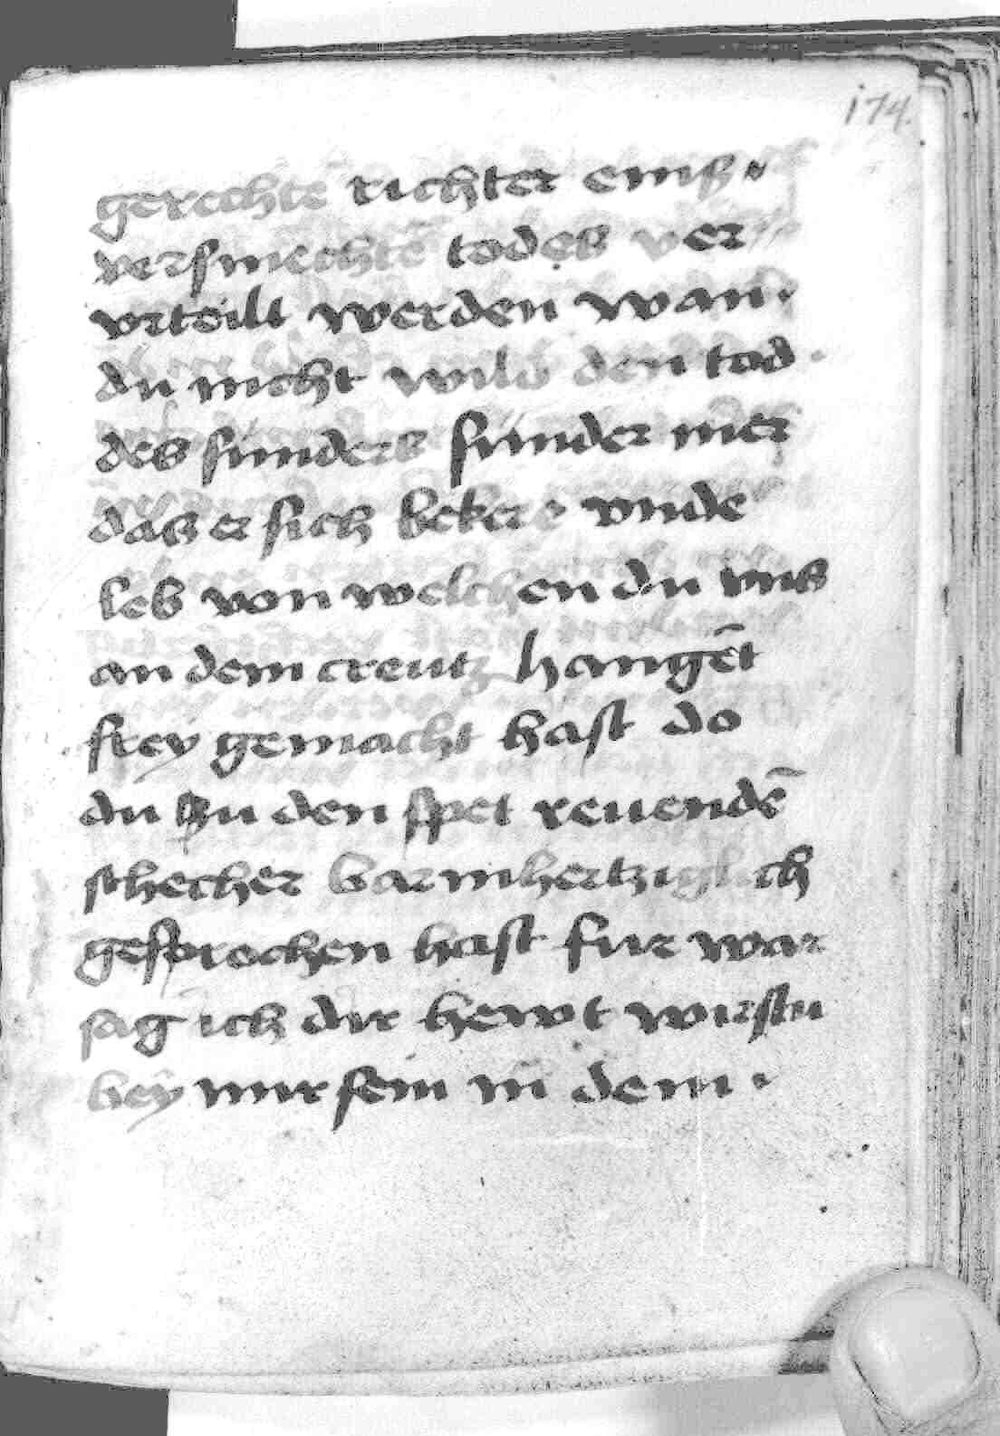 174.
gerechtē richter eins
versmechtē todes ver
vrteilt werden wan
du nicht wilb den tod
des sunders sunder mer
das er sich bekere vnde
leb von welchen du vns
an dem creutz hangēt
frey gemacht hast do
du zu den spet reuendē
schecher barmhertziglich
gesprochen hast fur war
sag ich dir hewt wirstu
bey mir sein in dem